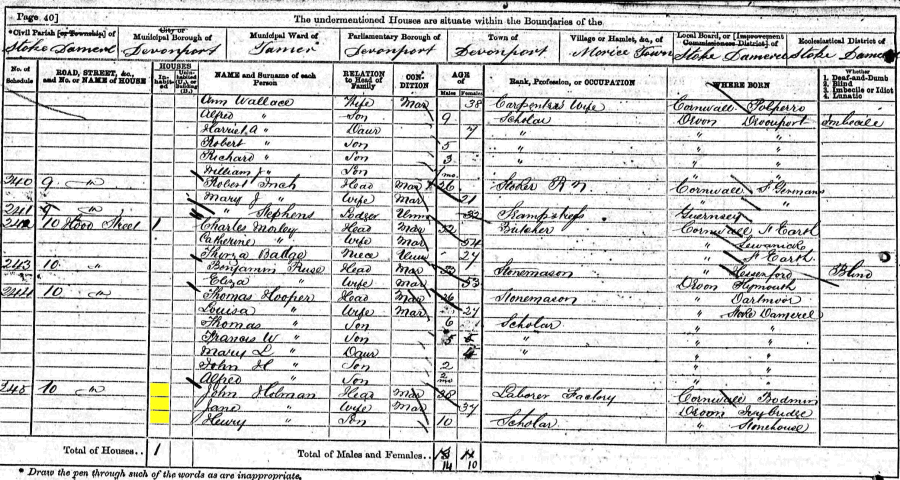 Page 40] The undermentioned Houses are situate within the Boundaries of the
*Civil Parish [or Township] of City or Municipal Borough of Municipal Ward of Parliamentary Borough of Town of Village or Hamlet, &c., of Local Board, or [Improvement Commissioners District] of Ecclesiastical District of
Stoke Damerel Devonport Tamer Devonport Devonport Morice Town Stoke Damerel Stoke Damerel
No. of Schedule ROAD, STREET, &c., and No. or NAME of HOUSE HOUSES Inhabited Uninhabited (U.), or Building (B.) NAME and Surname of each Person RELATION to Head of Family CONDITION AGE of Males Females Rank, Profession, or OCCUPATION WHERE BORN Whether 1. Deaf-and-Dumb 2. Blind 3. Imbecile or Idiot 4. Lunatic
Ann Wallace Wife Mar 38 Carpenters Wife Cornwall Polperro
Alfred " Son 9 Scholar Devon Devonport Imbecile
Harriet A " Daur 7 " " "
Robert " Son 5 " "
Richard " Son 3 " "
William J " Son 1 mo " "
240 9 Do Robert Head Mar 26 Stoker R N Cornwall St Germans
Mary J " Wife Mar 21 " "
241 9 " " Stephens Lodger Unm 32 Guernsey
242 10 Hood Street 1 Charles Morley Head Mar 52 Butcher Cornwall St Earth
Catherine " Wife Mar 54 " Lewanick
Thirza Niece Unm 27 " St Earth
243 10 " Benjamin Ruse Head Mar Stonemason " Hessenford Blind
Eliza " Wife Mar 53 Devon Plymouth
244 10 " Thomas Hooper Head Mar 26 Stonemason " Dartmoor
Louisa " Wife Mar 27 " Stoke Damerel
Thomas " Son 6 Scholar " "
Francis W " Son 5 " " "
Mary L " Daur 4 " "
John H " Son 2 " "
Alfred " Son 2 mo " "
245 10 Do John Holman Head Mar 38 Laborer Factory Cornwall Bodmin
Jane " Wife Mar 37 Devon Ivybridge
Henry " Son 10 Scholar " Stonehouse
Total of Houses.. 1 Total of Males and Females.. 14 10
* Draw the pen through such of the words as are inappropriate.